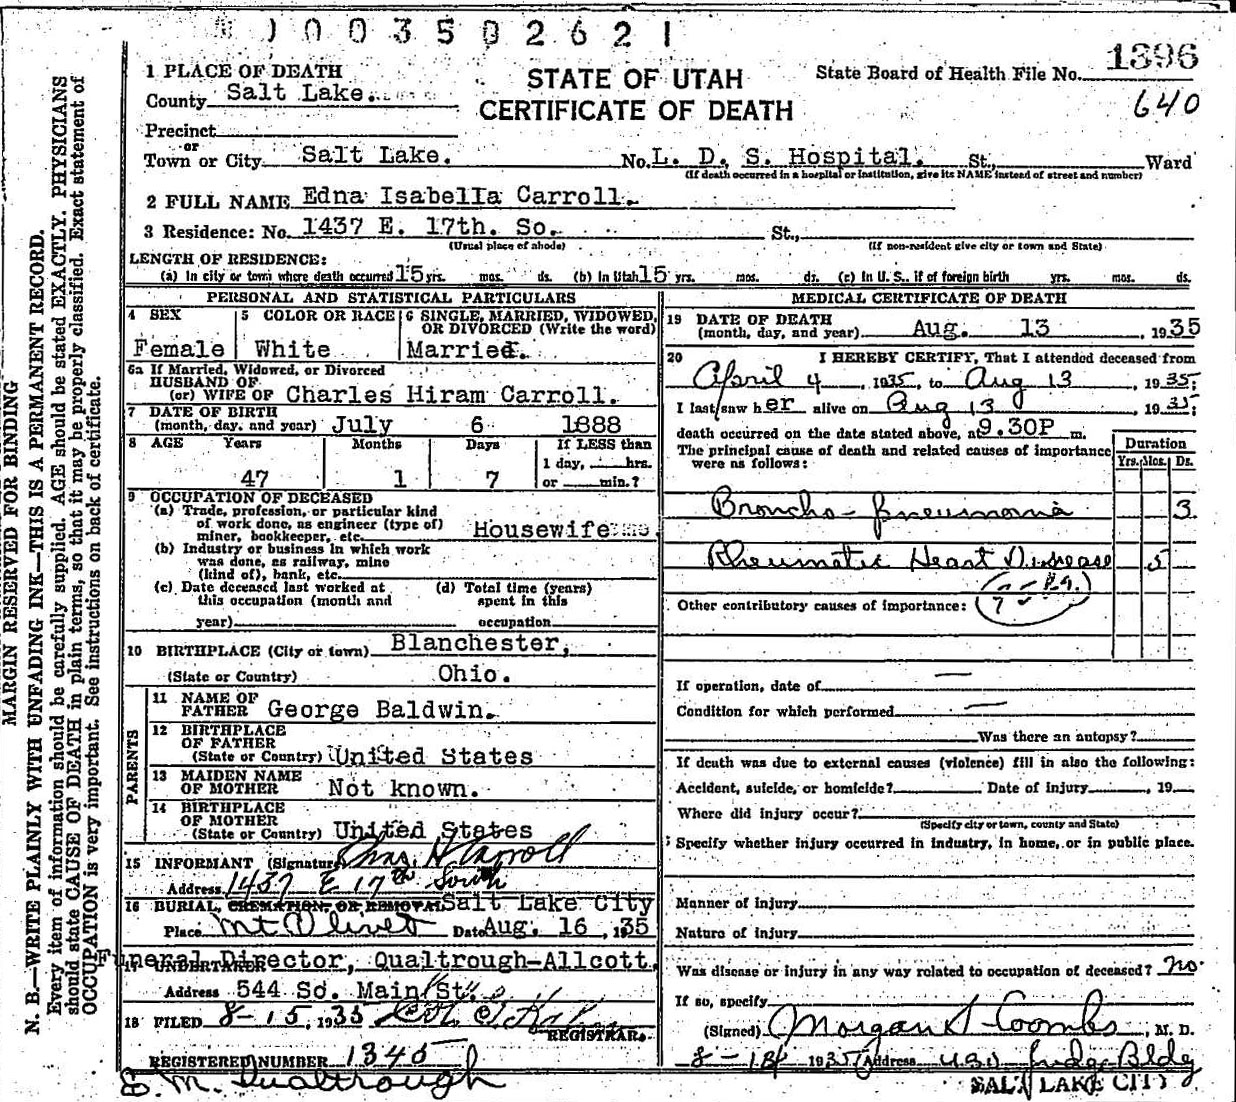 1003502621
1 PLACE OF DEATH
STATE OF UTAH
CERTIFICATE OF DEATH
State Board of Health File No. 1396
640
County Salt Lake.
Precinct
or
Town or City Salt Lake. No. L. D. S. Hospital. St., Ward
(If death occurred in a hospital or institution, give its NAME instead of street and number)
2 FULL NAME Edna Isabella Carroll.
3 Residence: No. 1437 E. 17th. So. St.,
(Usual place of abode) (If non-resident give city or town and State)
LENGTH OF RESIDENCE:
(a) In city or town where death occurred 15 yrs. mos. ds. (b) In Utah 15 yrs. mos. ds. (c) In U. S., if of foreign birth yrs. mos. ds.
PERSONAL AND STATISTICAL PARTICULARS
4 SEX 5 COLOR OR RACE 6 SINGLE, MARRIED, WIDOWED,
OR DIVORCED (Write the word)
Female White Married.
6a If Married, Widowed, or Divorced
HUSBAND OF
(or) WIFE OF Charles Hiram Carroll.
7 DATE OF BIRTH
(month, day, and year) July 6 1888
8 AGE Years Months Days If LESS than
1 day, hrs.
47 1 7 or min.?
9 OCCUPATION OF DECEASED
(a) Trade, profession, or particular kind
of work done, as engineer (type of)
miner, bookkeeper, etc. Housewife
(b) Industry or business in which work
was done, as railway, mine
(kind of), bank, etc.
(c) Date deceased last worked at (d) Total time (years)
this occupation (month and spent in this
year) occupation
10 BIRTHPLACE (City or town) Blanchester,
(State or Country) Ohio.
PARENTS
11 NAME OF
FATHER George Baldwin.
12 BIRTHPLACE
OF FATHER
(State or Country) United States
13 MAIDEN NAME
OF MOTHER Not known.
14 BIRTHPLACE
OF MOTHER
(State or Country) United States
15 INFORMANT (Signature) Chas H Carroll
Address 1437 E 17th South
16 BURIAL, CREMATION, OR REMOVAL Salt Lake City
Place Mt Olivet Date Aug. 16, 1935
17 UNDERTAKER Funeral Director, Qualtrough-Allcott.
Address 544 So. Main St.
18 FILED 8-15, 1935
REGISTRAR.
REGISTERED NUMBER 1345
E. M. Qualtrough
MEDICAL CERTIFICATE OF DEATH
19 DATE OF DEATH
(month, day, and year) Aug. 13, 1935
20 I HEREBY CERTIFY, That I attended deceased from
April 4, 1935, to Aug 13, 1935;
I last saw her alive on Aug 13, 1935;
death occurred on the date stated above, at 9.30P m.
The principal cause of death and related causes of importance
were as follows:
Duration
Yrs. Mos. Ds.
Broncho-pneumonia 3
Rheumatic Heart Disease 5
Other contributory causes of importance:
If operation, date of —
Condition for which performed —
Was there an autopsy?
If death was due to external causes (violence) fill in also the following:
Accident, suicide, or homicide? Date of injury, 19
Where did injury occur?
(Specify city or town, county and State)
Specify whether injury occurred in industry, in home, or in public place.
Manner of injury
Nature of injury
Was disease or injury in any way related to occupation of deceased? no
If so, specify
(Signed) Morgan S Coombs, M. D.
8-14 1935 Address Judge Bldg
SALT LAKE CITY
MARGIN RESERVED FOR BINDING
N. B.—WRITE PLAINLY WITH UNFADING INK—THIS IS A PERMANENT RECORD.
Every item of information should be carefully supplied. AGE should be stated EXACTLY. PHYSICIANS
should state CAUSE OF DEATH in plain terms, so that it may be properly classified. Exact statement of
OCCUPATION is very important. See instructions on back of certificate.